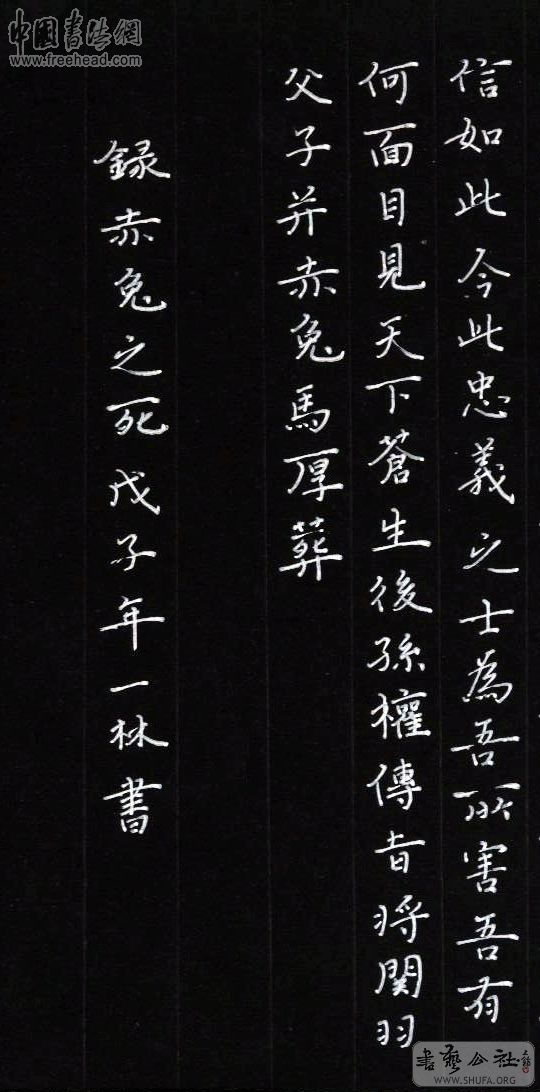 信如此今此忠義之士為吾所害吾有
何面目見天下蒼生後孫權傳旨将関羽
父子并赤兔馬厚葬
録赤兔之死戊子年一林書
中國書法網
www.freehead.com
書藝公社
WWW.SHUFA.ORG